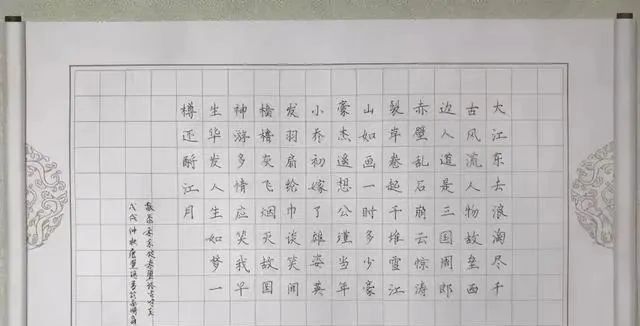 大江东去浪淘尽千
古风流人物故垒西
边人道是三国周郎
赤壁乱石崩云惊涛
裂岸卷起千堆雪江
山如画一时多少豪
豪杰遥想公瑾当年
小乔初嫁了雄姿英
发羽扇轮巾谈笑间
樯橹灰飞烟灭故国
神游多情应笑我早
生华发人生如梦一
樽还酹江月
戊戌仲秋